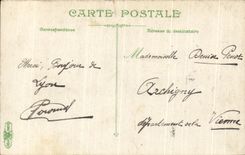 CARTE POSTALE
Correspondance
Adresse du destinataire
Mademoiselle Denise
Merci, Bonjour de
Lyon
Archigny
département de la
Vienne